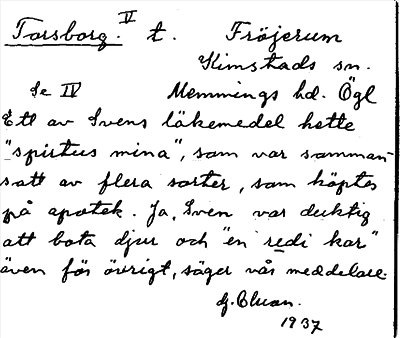 Torsborg. II t. Fröjerum
Kimstads sn.
Se IV Memmings hd. Ögl
Ett av Svens läkemedel hette
"spirtus mina", som var samman-
satt av flera sorter, som köptes
på apotek. Ja, Sven var duktig
att bota djur och "en redi kar"
även för övrigt, säger vår meddelare.
1937